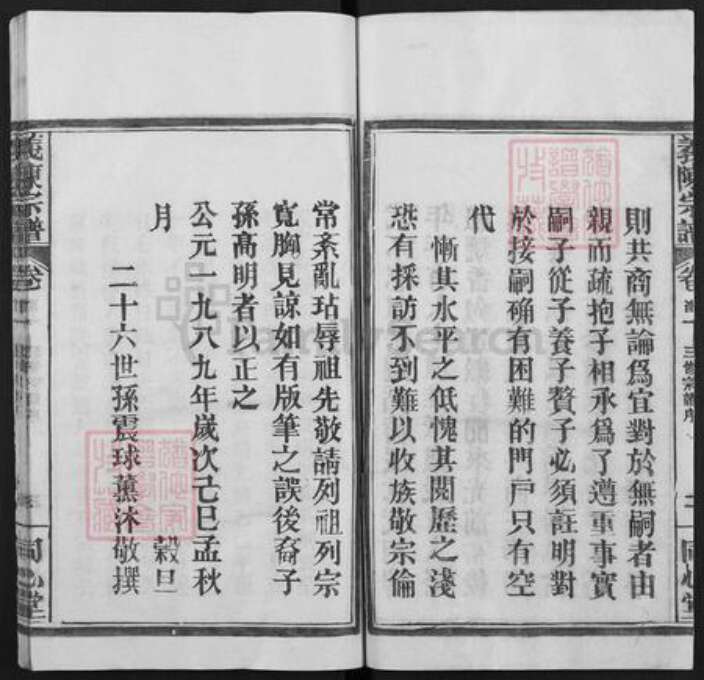 則共商無論爲宜對於無嗣者由
親而疏抱子相承爲了遵重事實
嗣子從子養子贅子必須註明對
於接嗣确有困難的門戶只有空
代
慚其水平之低愧其閱歷之淺
恐有採訪不到難以收族敬宗倫
常紊亂玷辱祖先敬請列祖列宗
寬胸見諒如有版筆之誤後裔子
孫高明者以正之
公元一九八九年歲次己巳孟秋
月 穀旦
二十六世孫震球薰沐敬撰
義陳宗譜 卷
三修宗譜序
二
同心堂
義陳宗譜 卷
同心堂
familysearch